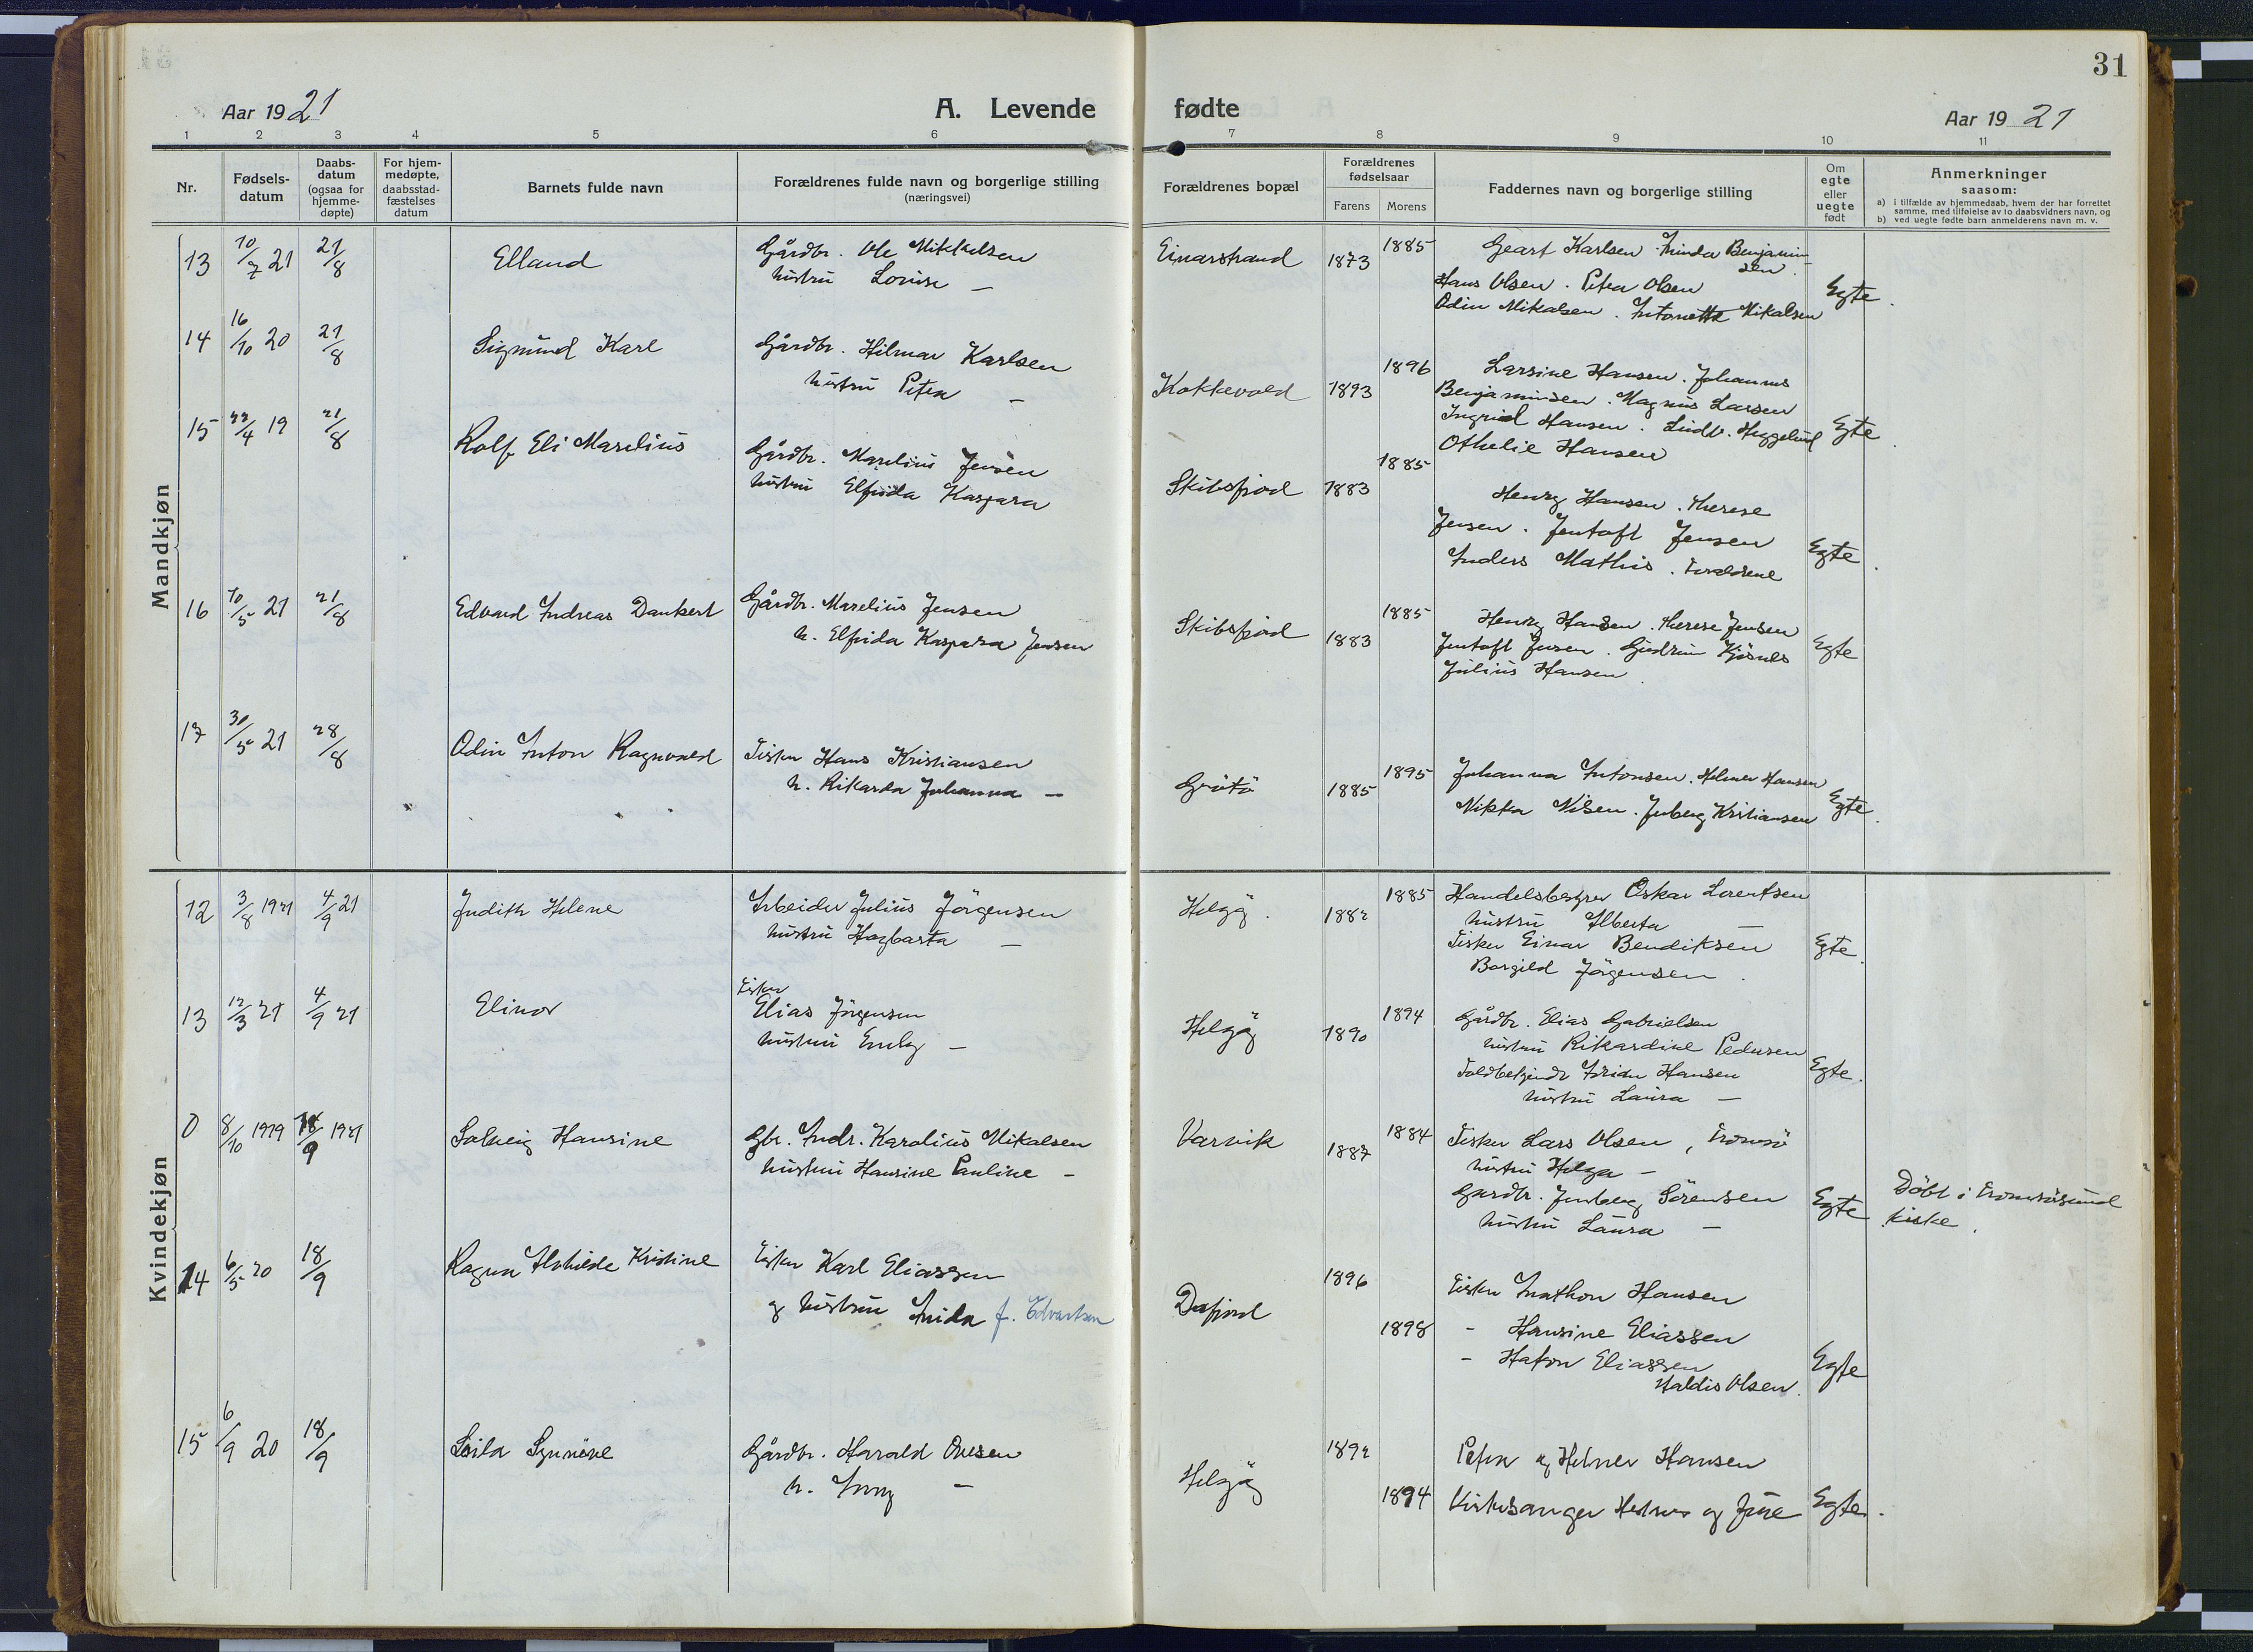 31
Aar 1921
A. Levende fødte
Aar 1921
1 2 3 4 5 6 7 8 9 10 11
Nr.
Fødsels-
datum
Daabs-
datum
(ogsaa for
hjemme-
døpte)
For hjem-
medøpte,
daabsstad-
fæstelses
datum
Barnets fulde navn
Forældrenes fulde navn og borgerlige stilling
(næringsvei)
Forældrenes bopæl
Forældrenes
fødselsaar
Farens Morens
Faddernes navn og borgerlige stilling
Om
egte
eller
uegte
født
Anmerkninger
saasom:
a) i tilfælde av hjemmedaab, hvem der har forrettet
samme, med tilføielse av to daabsvidners navn, og
b) ved uegte fødte barn anmelderens navn m. v.
Mandkjøn
13 10/7 21 21/8 Elland Gårdbr. Ole Mikkelsen
hustru Louise —
Einarstrand 1873 1885 Geart Karlsen Benjamin
sen.
Hans Olsen. Petra Olsen
Odin Mikalsen. Antonette Mikalsen
Egte.
14 16/10 20 21/8 Sigmund Karl Gårdbr. Hilmar Karlsen
hustru Petra —
Kokkevold 1893 1896 Larsine Hansen. Johannes
Benjaminsen. Magnus Larsen
Ingrid Hansen. Ludv. Heggelund
Othelie Hansen
Egte.
15 22/4 19 21/8 Rolf Eli Marelius Gårdbr. Marelius Jensen
hustru Elfrida Kaspara
Skibsfjord 1883 1885
Henry Hansen. Therese
Jensen. Jentoft Jensen
Anders Mathis. Forældrene
Egte.
16 10/5 21 21/8 Edvard Andreas Dankert Gårdbr. Marelius Jensen
h. Elfrida Kaspara Jensen
Skibsfjord 1883 1885 Henry Hansen. Therese Jensen
Jentoft Jensen. Gudrun Kjøsnes
Julius Hansen.
Egte
17 30/5 21 28/8 Odin Anton Ragnvald Fisker Hans Kristiansen
h. Rikarda Johanna —
Grötö 1885 1895 Johanna Antonsen. Helmer Hansen
Mikka Nilsen. Jnberg Kristiansen
Egte.
Kvindekjøn
12 3/8 1921 4/9 21 Judith Helene Arbeider Julius Jörgensen
hustru Hagbarta —
Helgöy. 1882 1885 Handelsbestyrer Oskar Lorentsen
hustru Alberta —
Fisker Einar Bendiksen
Borgild Jörgensen.
Egte.
13 12/3 21 4/9 21 Elinor Fisker
Elias Jörgensen
hustru Emily —
Helgöy 1890 1894 Gårdbr. Elias Gabrielsen
hustru Rikardine Pedersen
Toldbetjendt Adrian Hansen
hustru Laura —
Egte.
0 8/10 1919 11/9 1921 Solveig Hansine Gbr. Andr. Karolius Mikalsen
hustru Hansine Pauline —
Varvik 1887 1884 Fisker Lars Olsen, Tromsö
hustru Helga —
Gardbr. Jenberg Sörensen
hustru Laura —
Egte
Döbt i Tromsösund
kirke.
14 6/5 20 18/9 Ragna Alvhilde Kristine Fisker Karl Eliassen
og hustru Anida f. Edvartsen
Dafjord 1896 1898
Fisker Anathon Hansen
- Hansine Eliassen
- Hakon Eliassen
Haldis Olsen.
Egte
15 6/9 20 18/9 Laila Synnöve Gårdbr. Harald Ovesen
h. Anny —
Helgöy 1892 1894
Petra og Helmer Hansen
Kirkesanger Helmer og Jine
Egte.